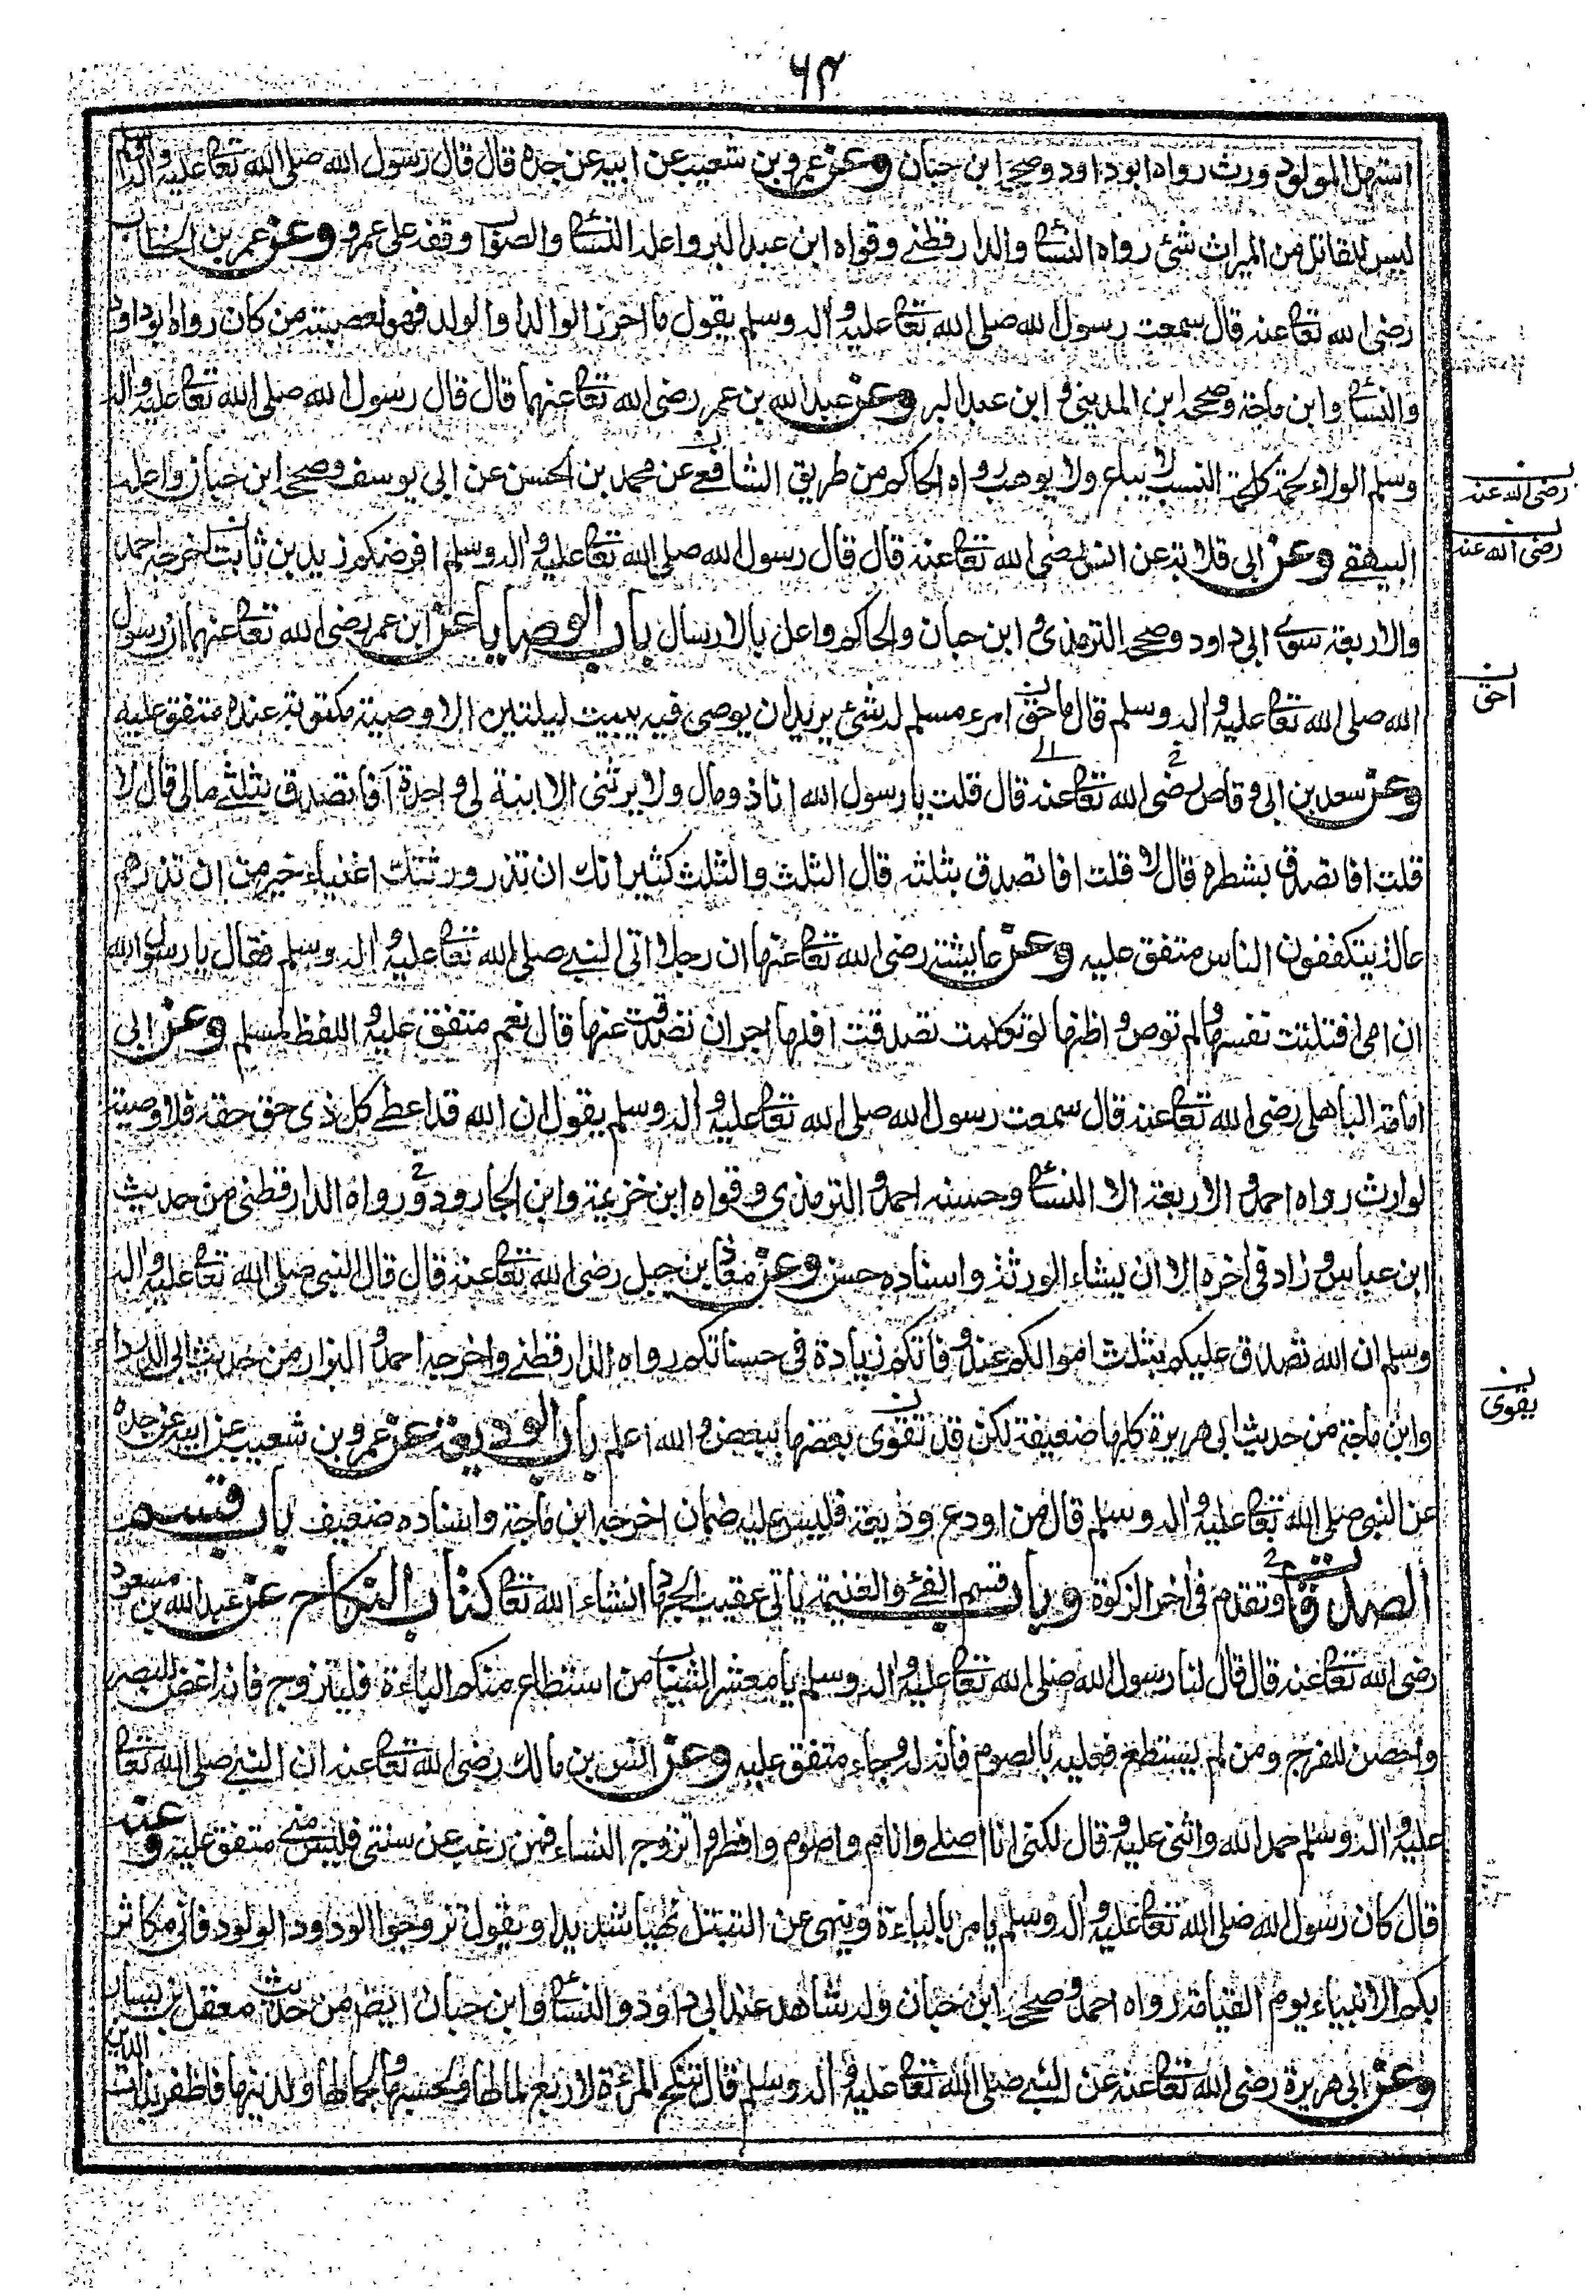 ٦٣
استهل المولود ورث رواه ابوداود وصححه ابن حبان وعن عمرو بن شعيب عن ابيه عن جده قال قال رسول الله صلى الله تعا عليه واله وسلم
ليس للقاتل من الميراث شئ رواه النسائ والدارقطنے وقواه ابن عبدالبر واعله النسائ والصواب وقفه على عمرو وعن عمر بن الخطاب
رضى الله تعا عنه قال سمعت رسول الله صلى الله تعا عليه واله وسلم يقول ما احرز الوالد او الولد فهو لعصبته من كان رواه ابوداود
والنسائ وابن ماجة وصححه ابن المدينى و ابن عبد البر وعن عبد الله بن عمر رضى الله تعا عنهما قال قال رسول الله صلى الله تعا عليه واله
وسلم الولاء لحمة كلحمة النسب لا يباع ولا يوهب رواه الحاكم من طريق الشافعے عن محمد بن الحسن عن ابى يوسف وصححه ابن حبان واعله
رضى الله عنه
البيهقے وعن ابى قلابة عن انس رضى الله تعا عنه قال قال رسول الله صلى الله تعا عليه واله وسلم افرضكم زيد بن ثابت اخرجه احمد
رضى الله عنه
والاربعة سوى ابى داود وصححه الترمذى و ابن حبان والحاكم واعل بالارسال باب الوصايا عن ابن عمر رضى الله تعا عنهما ان رسول
الله صلى الله تعا عليه واله وسلم قال ما حق امرء مسلم له شئ يريد ان يوصى فيه يبيت ليلتين الا ووصيته مكتوبة عنده متفق عليه
احق
وعن سعد بن ابى وقاص رضى الله تعا عنه قال قلت يا رسول الله انا ذو مال ولا يرثنى الا ابنة لى واحدة أفاتصدق بثلثے مالى قال لا
قلت افاتصدق بشطره قال لا قلت افاتصدق بثلثه قال الثلث والثلث كثير انك ان تذر ورثتك اغنياء خير من ان تذرهم
عالة يتكففون الناس متفق عليه وعن عايشة رضى الله تعا عنها ان رجلا اتى النبے صلى الله تعا عليه واله وسلم فقال يا رسول الله
ان امى افتلتت نفسها ولم توص و اظنها لو تكلمت تصدقت افلها اجر ان تصدقت عنها قال نعم متفق عليه و اللفظ لمسلم وعن ابى
امامة الباهلى رضى الله تعا عنه قال سمعت رسول الله صلى الله تعا عليه واله وسلم يقول ان الله قد اعطے كل ذى حق حقه فلا وصية
لوارث رواه احمد و الاربعة الا النسائ وحسنه احمد و الترمذى وقواه ابن خزيمة وابن الجارود و رواه الدارقطنى من حديث
ابن عباس و زاد فى اخره الا ان يشاء الورثة واسناده حسن وعن معاذ بن جبل رضى الله تعا عنه قال قال النبى صلى الله تعا عليه واله
وسلم ان الله تصدق عليكم بثلث اموالكم عند وفاتكم زيادة فى حسناتكم رواه الدارقطنے واخرجه احمد و البزار من حديث ابى الدرداء
وابن ماجة من حديث ابى هريرة كلها ضعيفة لكن قد تقوى بعضها ببعض و الله اعلم باب الوديعة عن عمرو بن شعيب عن ابيه عن جده
يقوى
عن النبى صلى الله تعا عليه واله وسلم قال من اودع وديعة فليس عليه ضمان اخرجه ابن ماجة واسناده ضعيف باب قسم
الصدقات تقدم فى اخر الزكوة وباب قسم الفئ والغنيمة ياتى عقيب الجهاد انشاء الله تعا كتاب النكاح عن عبد الله بن مسعود
رضى الله تعا عنه قال قال لنا رسول الله صلى الله تعا عليه واله وسلم يا معشر الشباب من استطاع منكم الباءة فليتزوج فانه اغض للبصر
واحصن للفرج ومن لم يستطع فعليه بالصوم فانه له وجاء متفق عليه وعن انس بن مالك رضى الله تعا عنه ان النبے صلى الله تعا
عليه واله وسلم حمد الله واثنى عليه وقال لكنى انا اصلے وانام واصوم وافطر واتزوج النساء فمن رغب عن سنتى فليس منے متفق عليه وعنه
قال كان رسول الله صلى الله تعا عليه واله وسلم يامر بالباءة وينهى عن التبتل نهيا شديدا ويقول تزوجوا الودود الولود فانى مكاثر
بكم الانبياء يوم القيامة رواه احمد وصححه ابن حبان وله شاهد عند ابى داود والنسائ وابن حبان ايضا من حديث معقل بن يسار
وعن ابى هريرة رضى الله تعا عنه عن النبے صلى الله تعا عليه واله وسلم قال تنكح المرءة لاربع لمالها ولحسبها ولجمالها ولدينها فاظفر بذات الدين